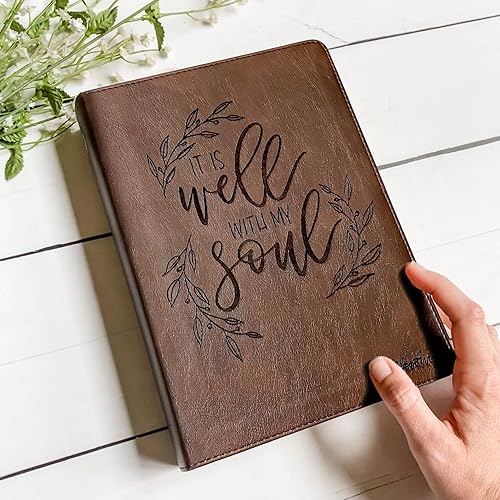 IT IS
well
WITH MY
soul